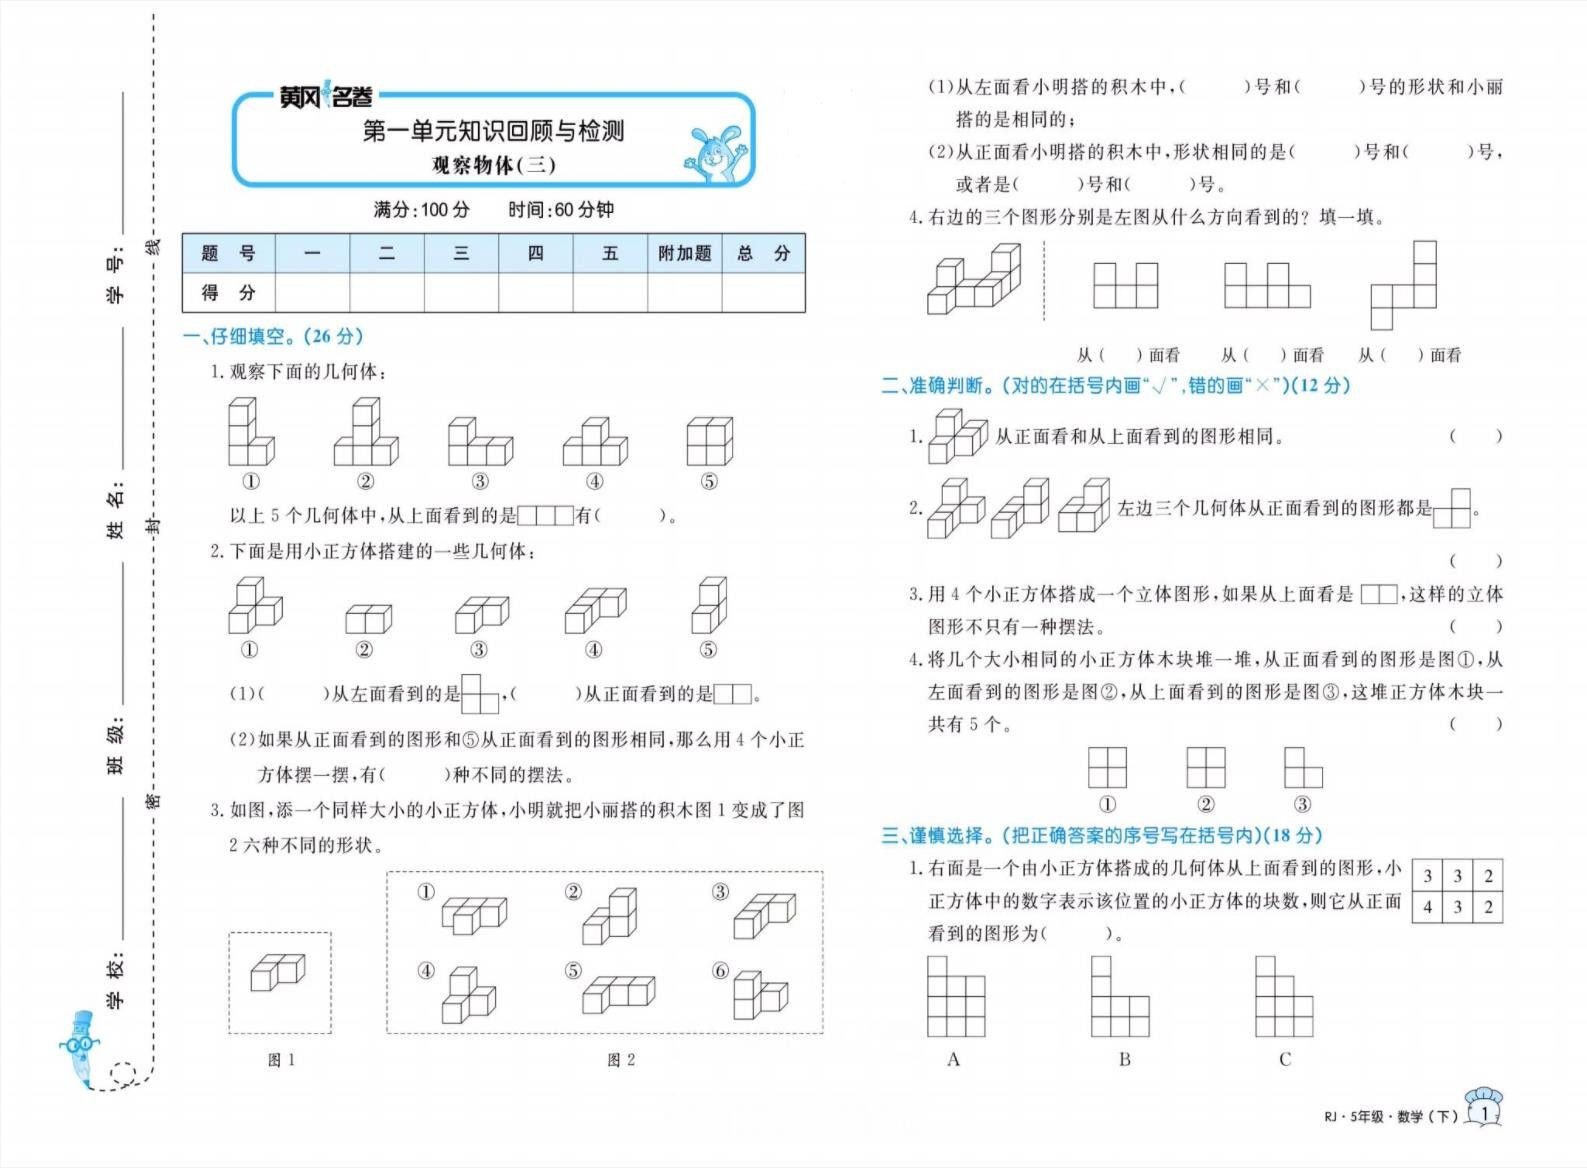 黄冈名卷
第一单元知识回顾与检测
观察物体(三)
满分:100分 时间:60分钟
题 号 一 二 三 四 五 附加题 总 分
得 分
一、仔细填空。(26分)
1.观察下面的几何体:
① ② ③ ④ ⑤
以上5个几何体中,从上面看到的是有( )。
2.下面是用小正方体搭建的一些几何体:
① ② ③ ④ ⑤
(1)( )从左面看到的是,( )从正面看到的是。
(2)如果从正面看到的图形和⑤从正面看到的图形相同,那么用4个小正
方体摆一摆,有( )种不同的摆法。
3.如图,添一个同样大小的小正方体,小明就把小丽搭的积木图1变成了图
2六种不同的形状。
① ② ③
④ ⑤ ⑥
图1 图2
学校: 班级: 姓名: 学号:
密 封 线
(1)从左面看小明搭的积木中,( )号和( )号的形状和小丽
搭的是相同的;
(2)从正面看小明搭的积木中,形状相同的是( )号和( )号,
或者是( )号和( )号。
4.右边的三个图形分别是左图从什么方向看到的?填一填。
从( )面看 从( )面看 从( )面看
二、准确判断。(对的在括号内画“√”,错的画“×”)(12分)
1.从正面看和从上面看到的图形相同。 ( )
2.左边三个几何体从正面看到的图形都是。
( )
3.用4个小正方体搭成一个立体图形,如果从上面看是,这样的立体
图形不只有一种摆法。 ( )
4.将几个大小相同的小正方体木块堆一堆,从正面看到的图形是图①,从
左面看到的图形是图②,从上面看到的图形是图③,这堆正方体木块一
共有5个。 ( )
① ② ③
三、谨慎选择。(把正确答案的序号写在括号内)(18分)
1.右面是一个由小正方体搭成的几何体从上面看到的图形,小
正方体中的数字表示该位置的小正方体的块数,则它从正面
看到的图形为( )。
3 3 2
4 3 2
A B C
RJ·5年级·数学(下) 1